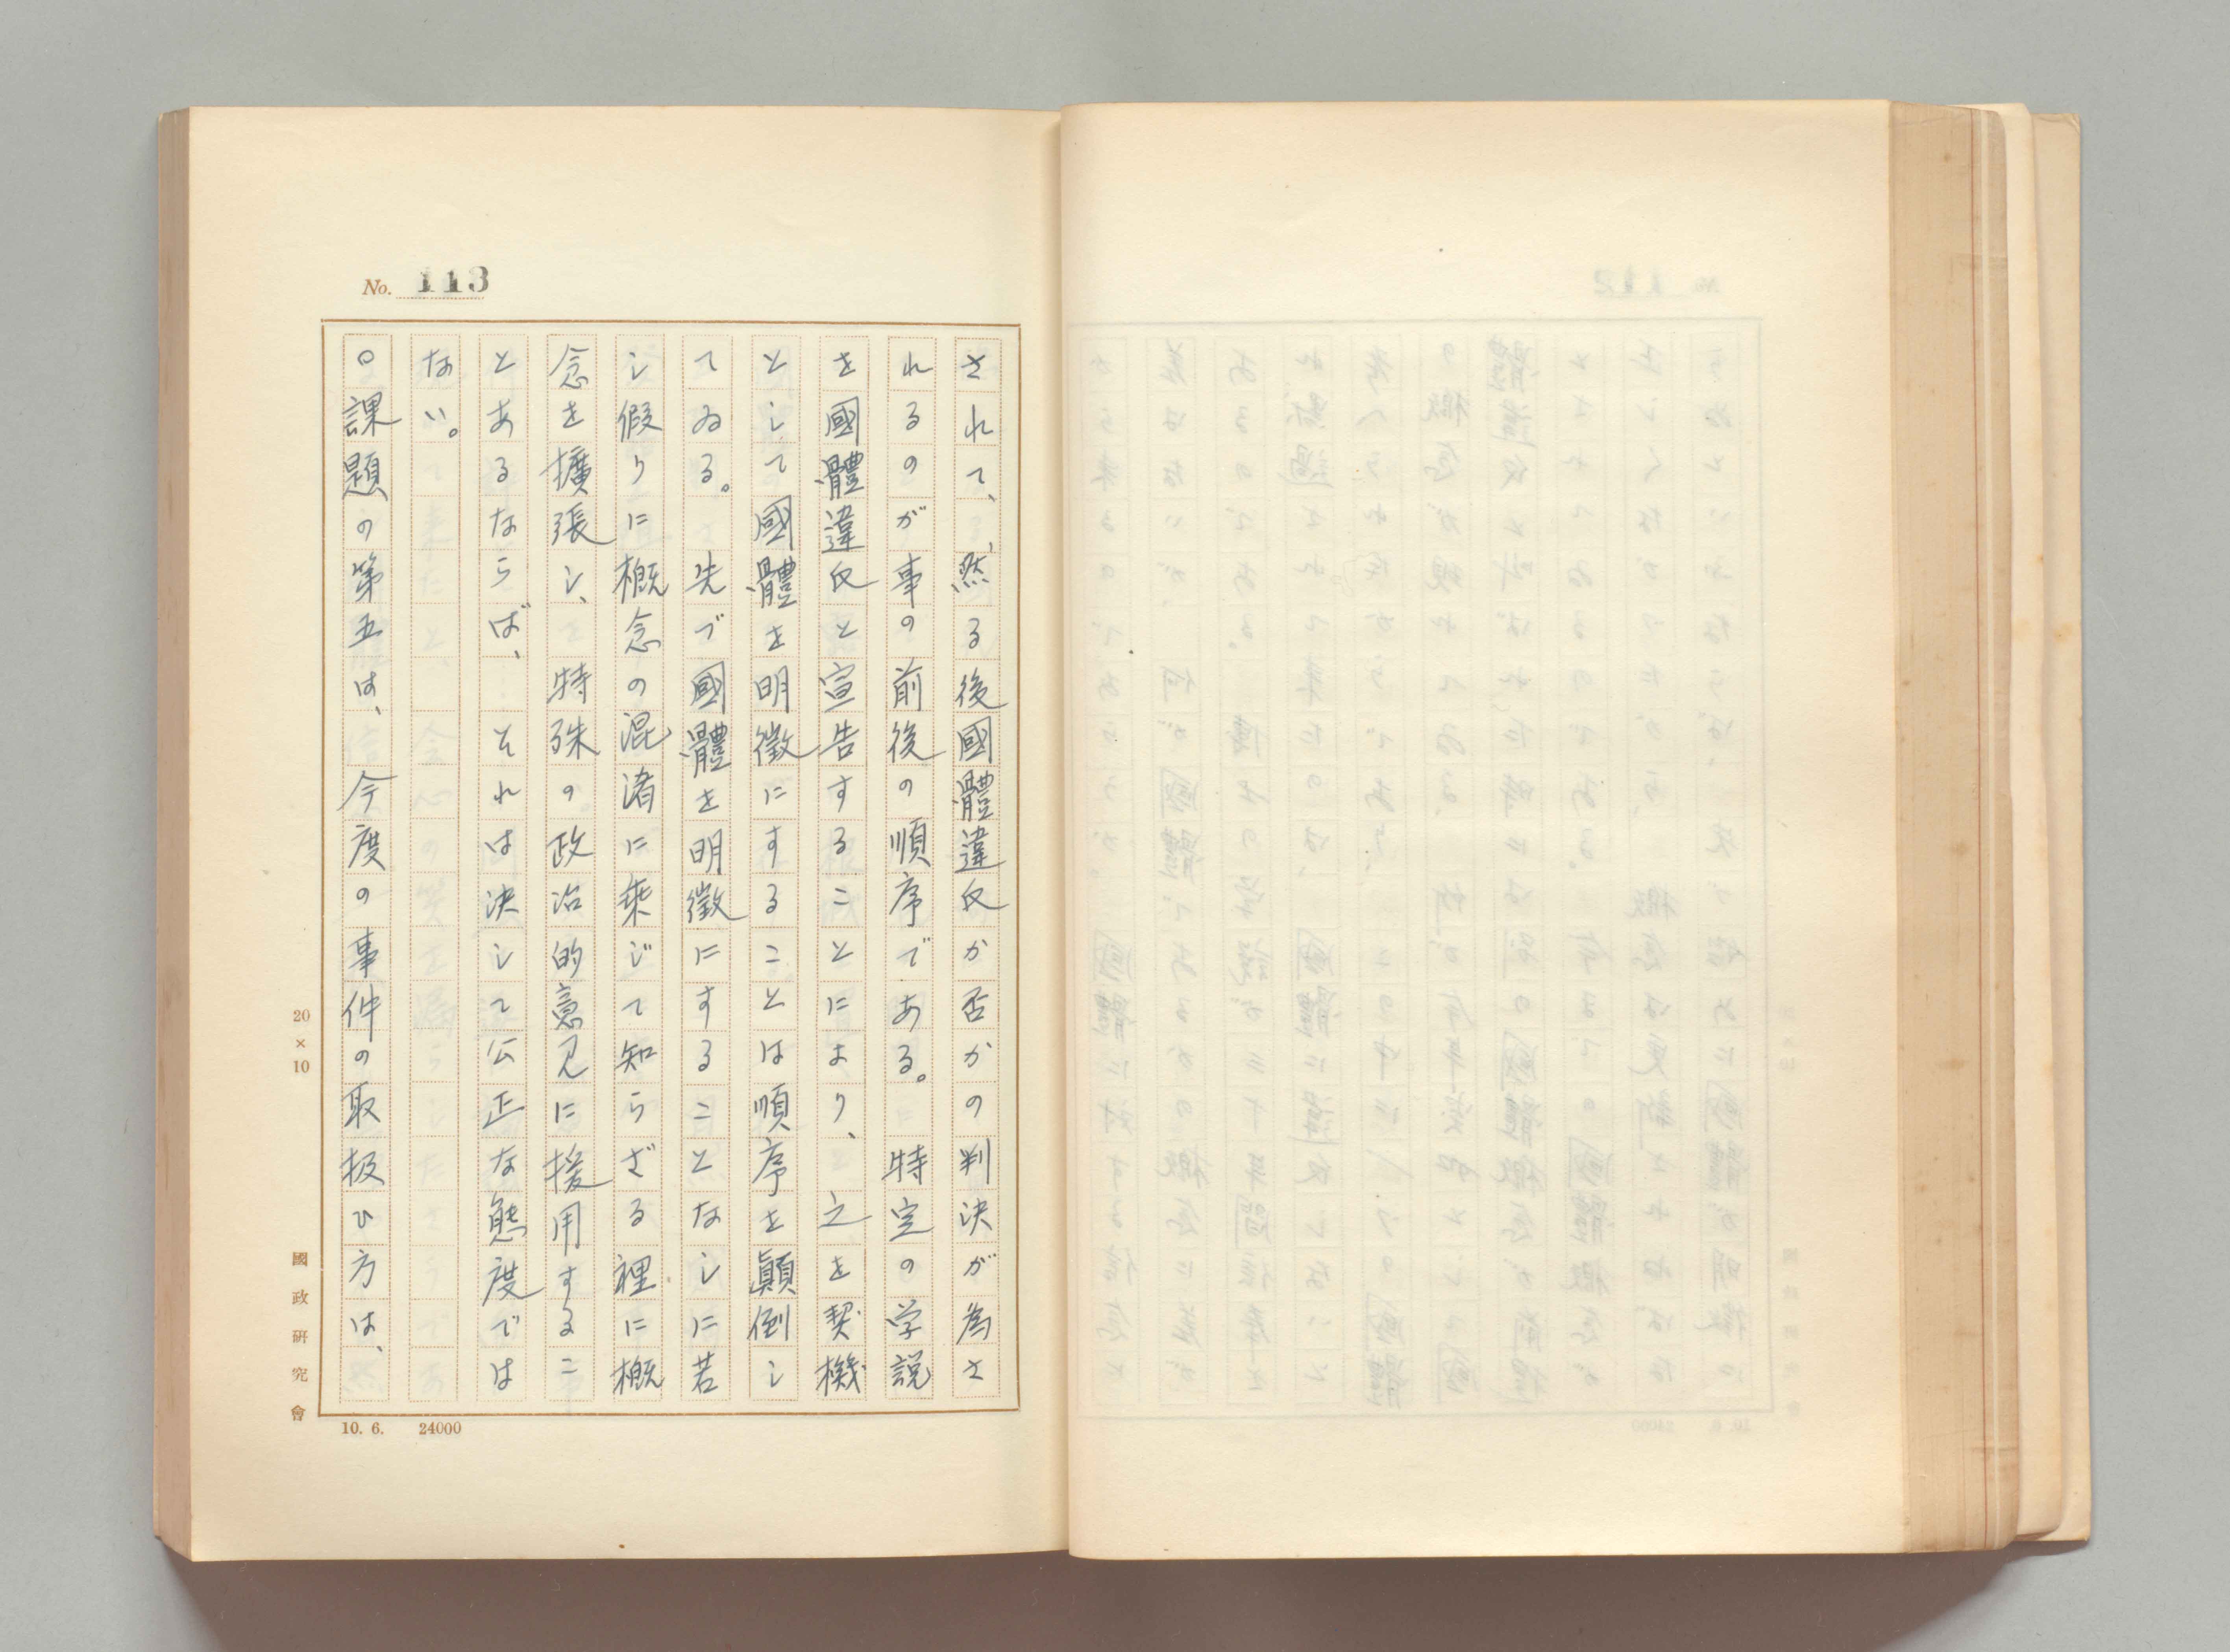 No. 113
されて、然る後國體違反か否かの判決が為さ
れるのが事の前後の順序である。特定の学説
を國體違反と宣告することにより、之を契機
として國體を明徴にすることは順序を顛倒し
てゐる。先づ國體を明徴にすることなしに若
し假りに概念の混淆に乗じて知らざる裡に概
念を擴張し、特殊の政治的意見に援用するこ
とあるならば、それは決して公正な態度では
ない。
○課題の第五は、今度の事件の取扱ひ方は、
20×10
國政研究會
10. 6. 24000